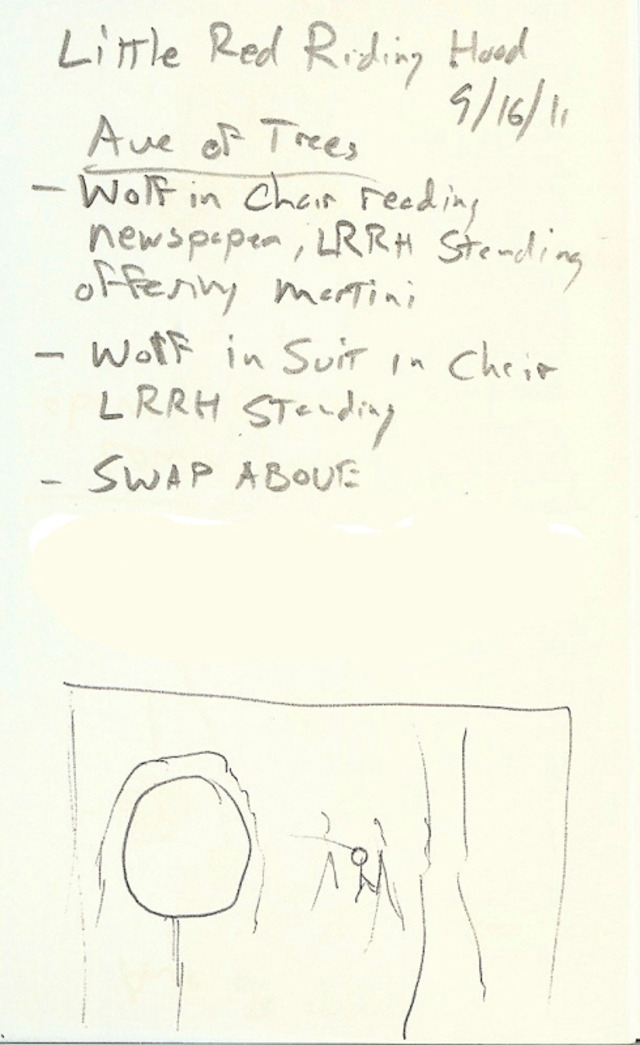 Little Red Riding Hood
9/16/11
Ave of Trees
- Wolf in Chair reading
newspaper, LRRH Standing
offering martini
- Wolf in Suit in Chair
LRRH Standing
- SWAP ABOVE